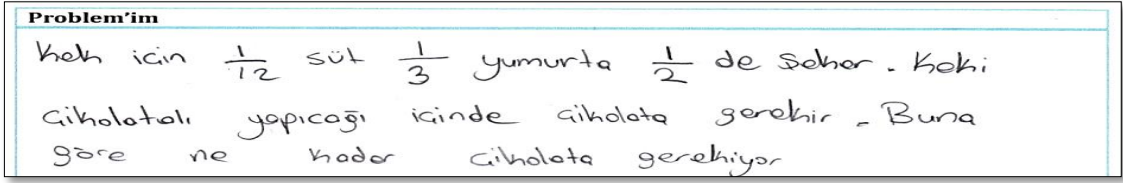 Problem'im
Kek icin 1/12 süt 1/3 yumurta 1/2 de Seker. Keki
Cikolatalı yapıcağı icinde cikolata gerekir. Buna
göre ne kadar cikolata gerekiyor